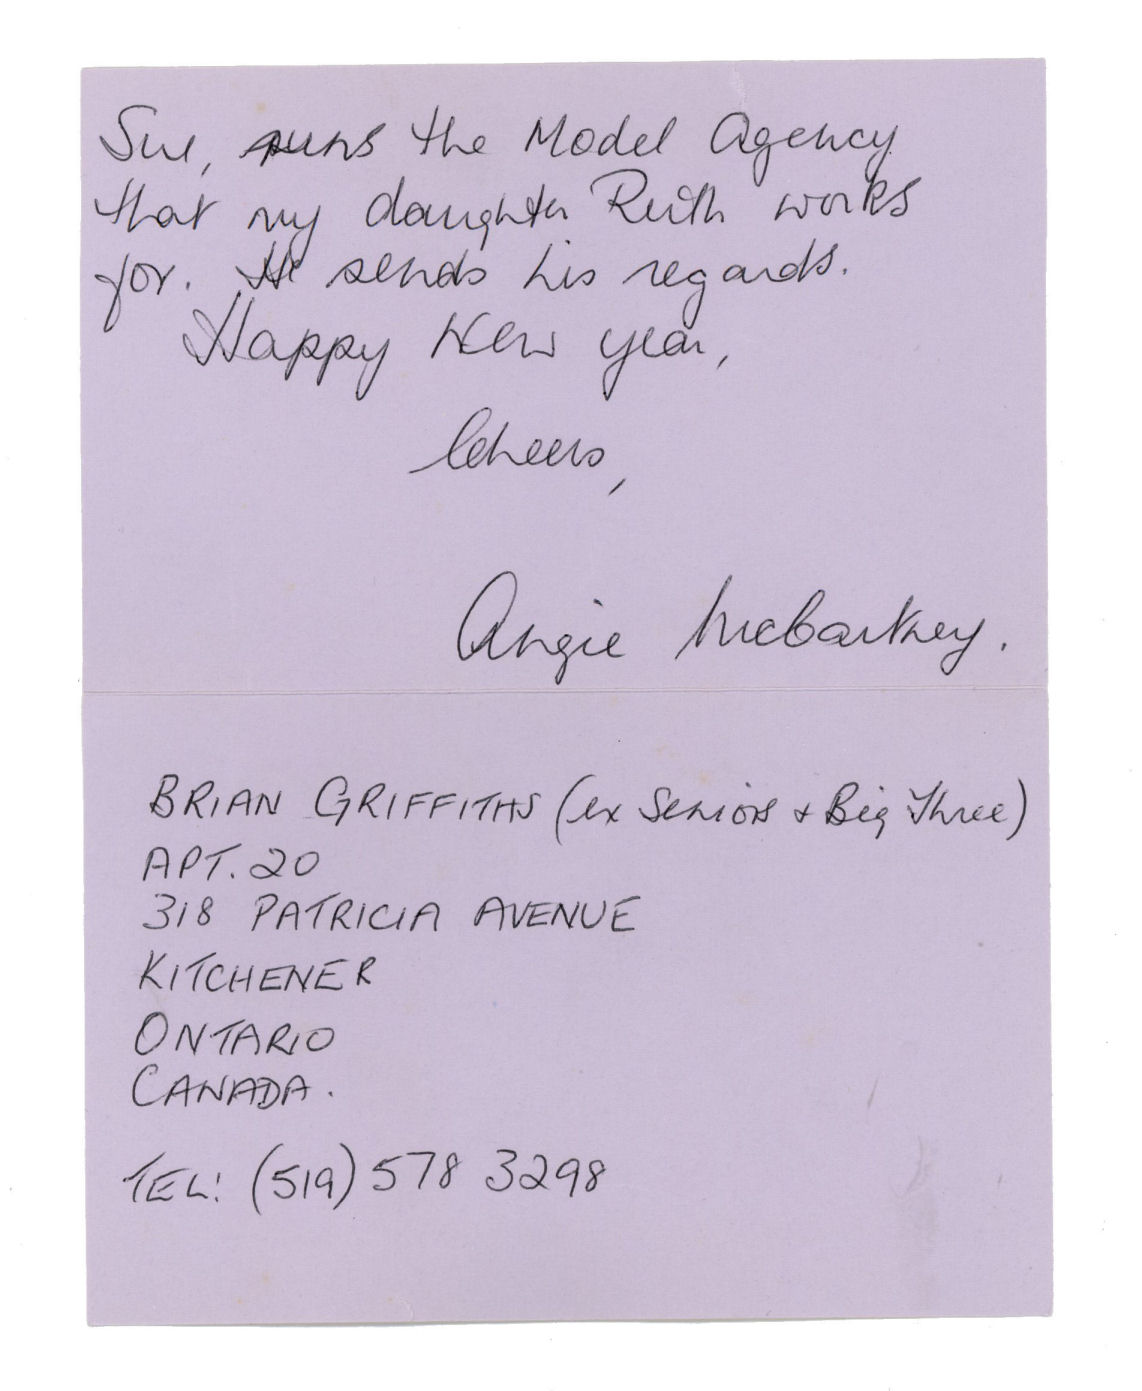 Sue, runs the Model Agency
that my daughter Ruth works
for. He sends his regards.
Happy New Year,
Cheers,
Angie McCartney.
BRIAN GRIFFITHS (ex Seniors + Big Three)
APT. 20
318 PATRICIA AVENUE
KITCHENER
ONTARIO
CANADA.
TEL: (519) 578 3298